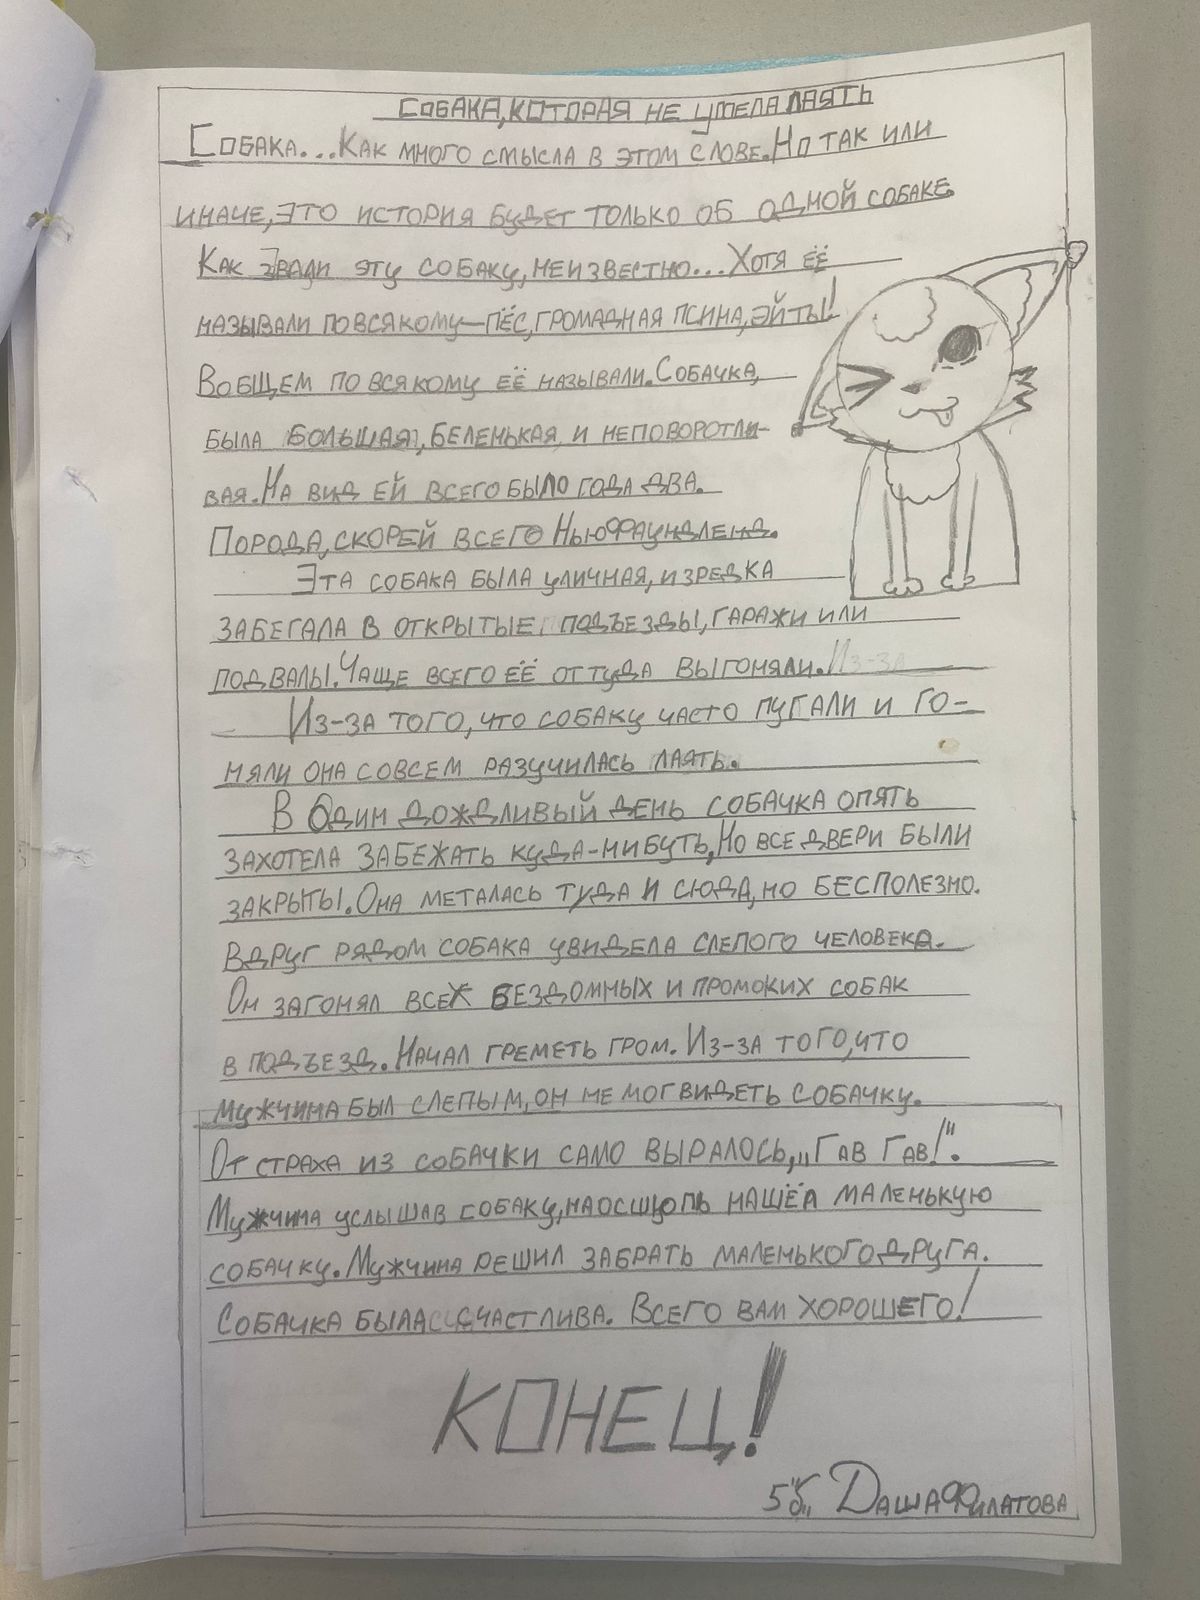 СОБАКА, КОТОРАЯ НЕ УМЕЛА ЛАЯТЬ
СОБАКА...КАК МНОГО СМЫСЛА В ЭТОМ СЛОВЕ. НО ТАК ИЛИ
ИНАЧЕ, ЭТО ИСТОРИЯ БУДЕТ ТОЛЬКО ОБ ОДНОЙ СОБАКЕ.
КАК ЗВАЛИ ЭТУ СОБАКУ, НЕИЗВЕСТНО...ХОТЯ ЕЁ
НАЗЫВАЛИ ПО ВСЯКОМУ—ПЁС, ГРОМАДНАЯ ПСИНА, ЭЙ ТЫ!
ВОБЩЕМ ПО ВСЯКОМУ ЕЁ НАЗЫВАЛИ. СОБАЧКА,
БЫЛА БОЛЬШАЯ, БЕЛЕНЬКАЯ И НЕПОВОРОТЛИ-
ВАЯ. НА ВИД ЕЙ ВСЕГО БЫЛО ГОДА ДВА.
ПОРОДА, СКОРЕЙ ВСЕГО НЬЮФАУНДЛЕНД.
ЭТА СОБАКА БЫЛА УЛИЧНАЯ, ИЗРЕДКА
ЗАБЕГАЛА В ОТКРЫТЫЕ ПОДЪЕЗДЫ, ГАРАЖИ ИЛИ
ПОДВАЛЫ. ЧАЩЕ ВСЕГО ЕЁ ОТТУДА ВЫГОНЯЛИ.
ИЗ-ЗА ТОГО, ЧТО СОБАКУ ЧАСТО ПУГАЛИ И ГО-
НЯЛИ ОНА СОВСЕМ РАЗУЧИЛАСЬ ЛАЯТЬ.
В ОДИН ДОЖДЛИВЫЙ ДЕНЬ СОБАЧКА ОПЯТЬ
ЗАХОТЕЛА ЗАБЕЖАТЬ КУДА-НИБУТЬ, НО ВСЕ ДВЕРИ БЫЛИ
ЗАКРЫТЫ. ОНА МЕТАЛАСЬ ТУДА И СЮДА, НО БЕСПОЛЕЗНО.
ВДРУГ РЯДОМ СОБАКА УВИДЕЛА СЛЕПОГО ЧЕЛОВЕКА.
ОН ЗАГОНЯЛ ВСЕХ БЕЗДОМНЫХ И ПРОМОКИХ СОБАК
В ПОДЪЕЗД. НАЧАЛ ГРЕМЕТЬ ГРОМ. ИЗ-ЗА ТОГО, ЧТО
МУЖЧИНА БЫЛ СЛЕПЫМ, ОН НЕ МОГ ВИДЕТЬ СОБАЧКУ.
ОТ СТРАХА ИЗ СОБАЧКИ САМО ВЫРАЛОСЬ, „ГАВ ГАВ!".
МУЖЧИНА УСЛЫШАВ СОБАКУ, НАОСЩУПЬ НАШЁЛ МАЛЕНЬКУЮ
СОБАЧКУ. МУЖЧИНА РЕШИЛ ЗАБРАТЬ МАЛЕНЬКОГО ДРУГА.
СОБАЧКА БЫЛА СЧАСТЛИВА. ВСЕГО ВАМ ХОРОШЕГО!
КОНЕЦ!
5"Б„ ДАША ФИЛАТОВА